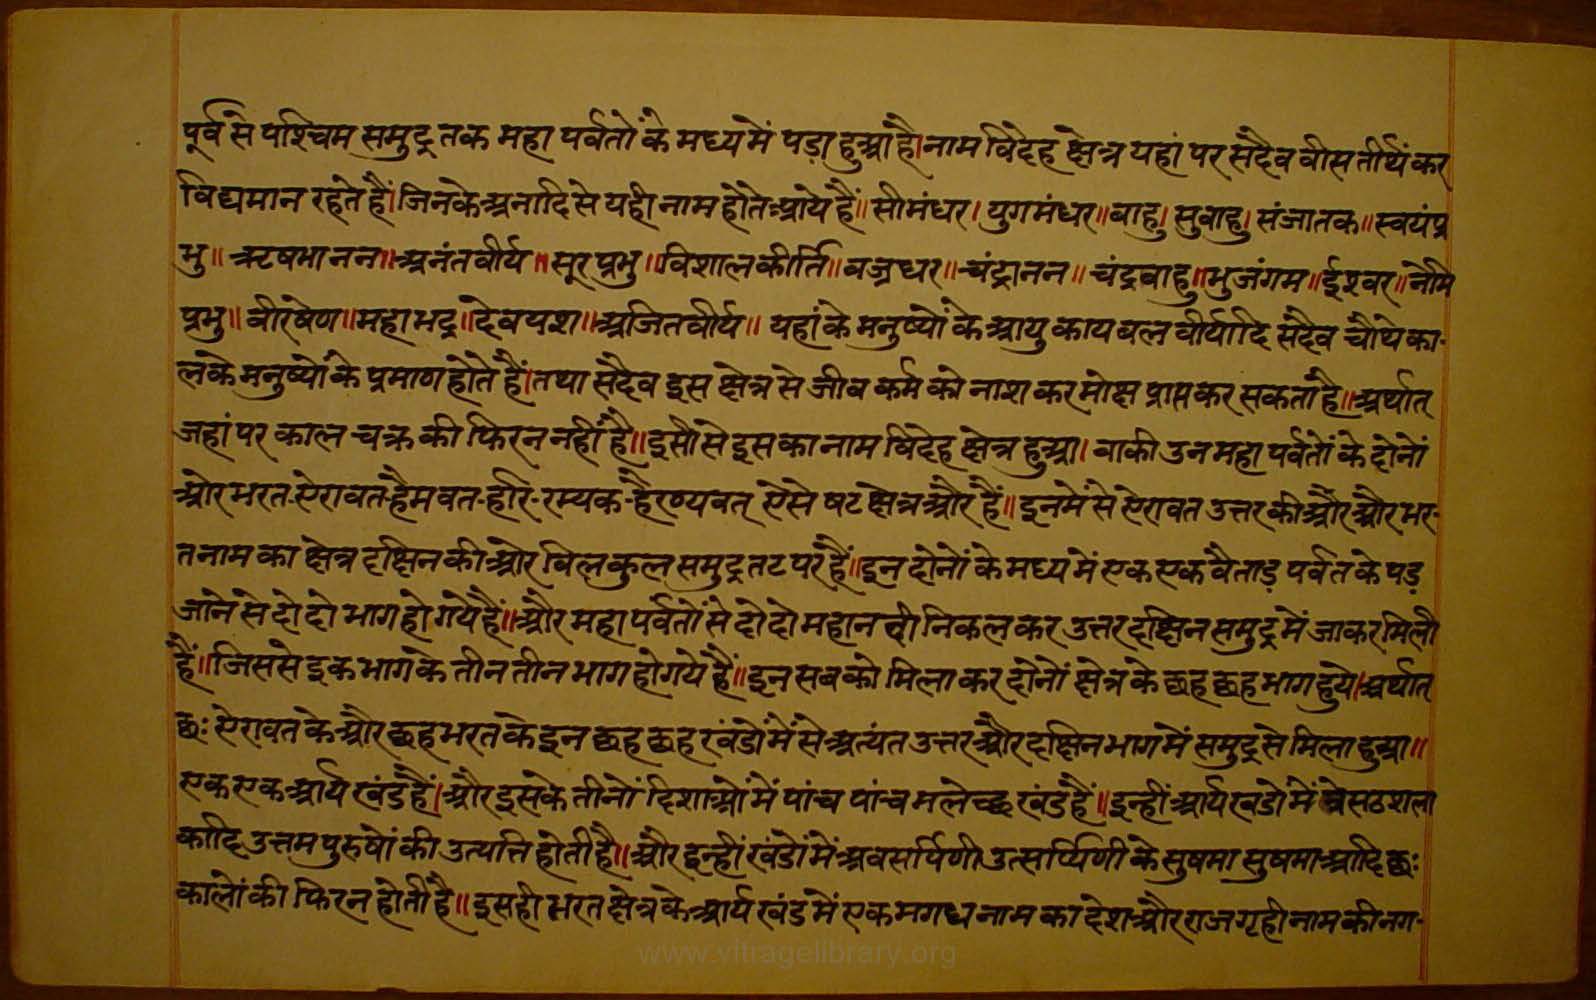 पूर्व से पश्चिम समुद्र तक महा पर्वतों के मध्य में पड़ा हुआ है।नाम विदेह क्षेत्र यहां पर सदैव वीस तीर्थंकर
विद्यमान रहते हैं।जिनके अनादि से यही नाम होते आये हैं॥ सीमंधर। युगमंधर॥ वाहु। सुवाहु। संजातक॥ स्वयंप्र
भु॥ ऋषभानन॥ अनंतवीर्य॥ सूरप्रभु॥ विशालकीर्ति॥ वज्रधर॥ चंद्रानन॥ चंद्रवाहु॥ भुजंगम॥ ईश्वर॥ नेमि
प्रभु॥ वीरषेण॥ महाभद्र॥ देवयश॥ अजितवीर्य॥ यहां के मनुष्यों के आयु काय वल वीर्यादि सदैव चौथे का-
लके मनुष्यों के प्रमाण होते हैं।तथा सदैव इस क्षेत्र से जीव कर्म को नाश कर मोक्ष प्राप्त कर सकता है॥ अर्थात्
जहां पर काल चक्र की फिरन नहीं है॥ इसी से इसका नाम विदेह क्षेत्र हुआ। वाकी उन महा पर्वतों के दोनों
ओर भरत-ऐरावत-हैमवत-हरि-रम्यक-हैरण्यवत् ऐसे षट क्षेत्र और हैं॥ इनमें से ऐरावत उत्तर की और और भर-
त नाम का क्षेत्र दक्षिन की ओर विलकुल समुद्र तट पर हैं॥ इन दोनों के मध्य में एक एक वैताड़ पर्वत के पड़
जाने से दो दो भाग हो गये हैं॥ और महा पर्वतों से दो दो महा नदी निकल कर उत्तर दक्षिन समुद्र में जाकर मिली
हैं॥ जिससे इक भाग के तीन तीन भाग हो गये हैं॥ इन सब को मिला कर दोनों क्षेत्र के छह छह भाग हुये।अर्थात्
छः ऐरावत के और छह भरत के इन छह छह खंडों में से अत्यंत उत्तर और दक्षिन भाग में समुद्र से मिला हुआ॥
एक एक आर्य खंड हैं। और इसके तीनों दिशाओं में पांच पांच मलेच्छ खंड हैं॥ इन्हीं आर्य खंडो में त्रेसठ शला
कादि उत्तम पुरुषों की उत्पत्ति होती है॥ और इन्हीं खंडों में अवसर्पिणी उत्सर्प्पिणी के सुषमा सुषमा आदि छः
कालों की फिरन होती है॥ इसही भरत क्षेत्र के आर्य खंड में एक मगध नाम का देश और राजगृही नाम की नग-
www.vitragelibrary.org